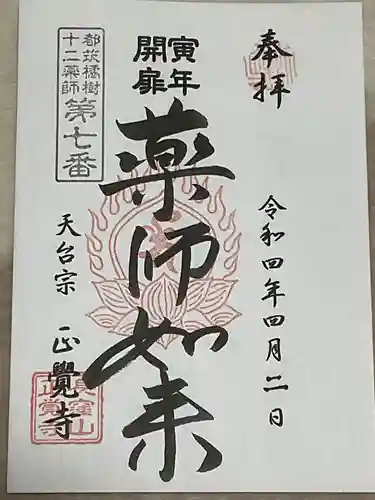 奉拝
令和四年四月二日
寅年
開扉
薬師如来
都筑橘樹
十二薬師
第七番
天台宗 正覺寺
長窪山
正覚寺